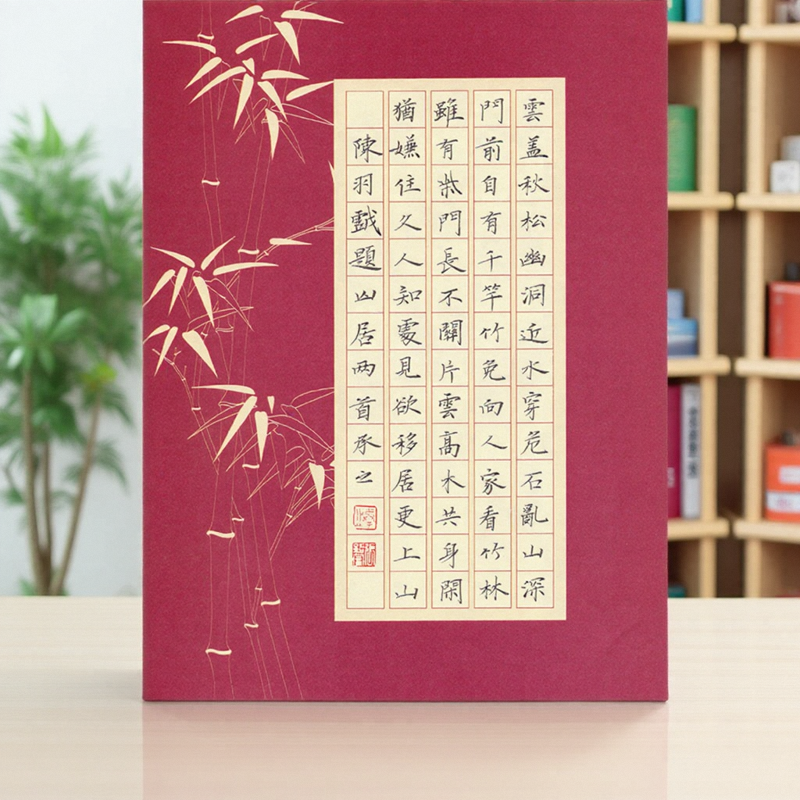 雲盖秋松幽洞近水穿危石亂山深
門前自有千竿竹免向人家看竹林
雖有柴門長不關片雲高木共身閑
猶嫌住久人知處見欲移居更上山
陳羽戲題山居兩首承之